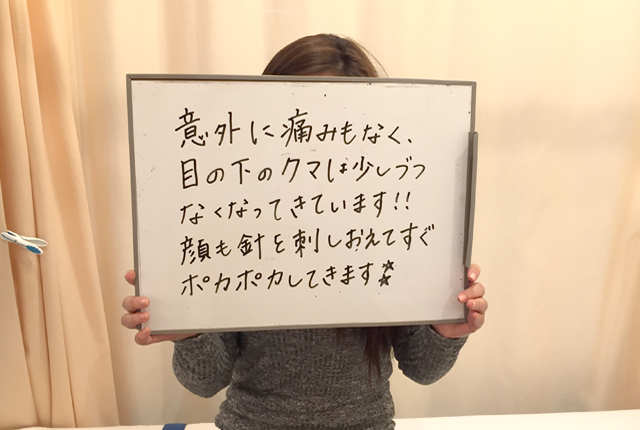 意外に痛みもなく、
目の下のクマは少しづつ
なくなってきています!!
顔も針を刺しおえてすぐ
ポカポカしてきます☆